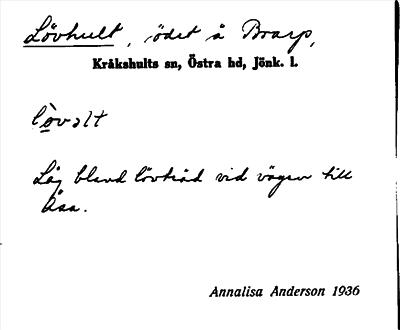 Lövhult, ödet å Brarp,
Kråkshults sn, Östra hd, Jönk. l.
lò̱vəlt
Låg bland lövträd vid vägen till
Åsa.
Annalisa Anderson 1936